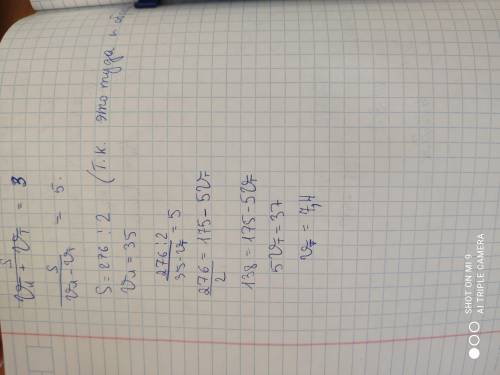 S / (Vл + Vт) = 3
S / (Vл - Vт) = 5.
S = 276 : 2 (т.к. это туда и
Vл = 35
276 : 2 / (35 - Vт) = 5
276 / 2 = 175 - 5Vт
138 = 175 - 5Vт
5Vт = 37
Vт = 7,4
SHOT ON MI 9
AI TRIPLE CAMERA